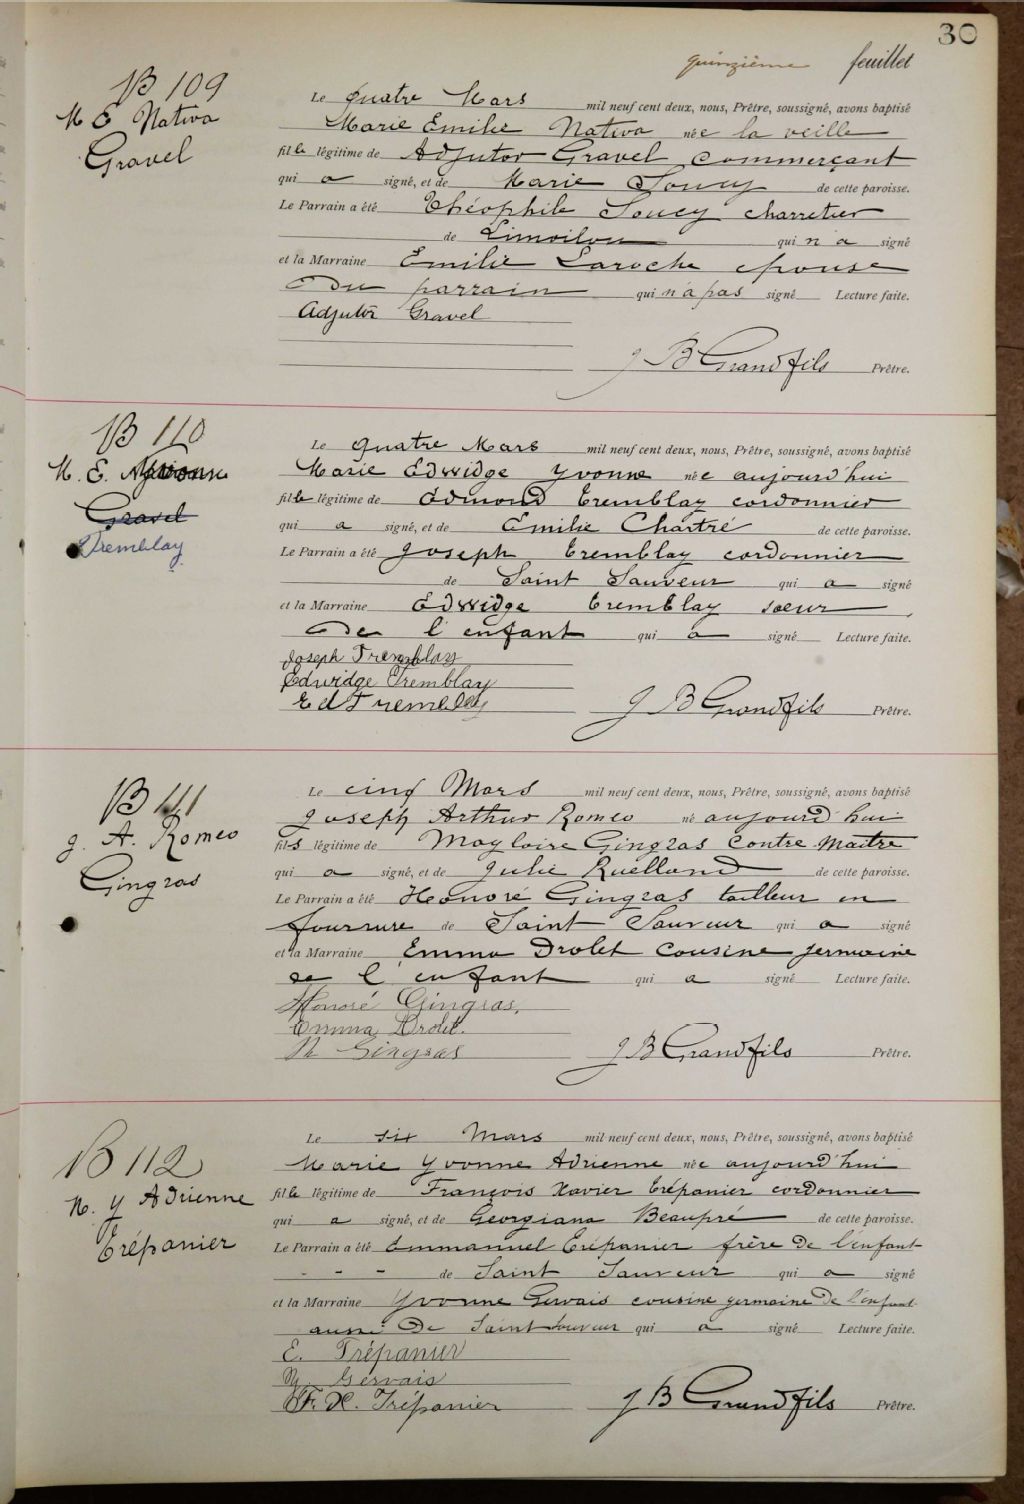 30
quinzième feuillet
B 109
M E Nativa
Gravel
Le quatre Mars mil neuf cent deux, nous, Prêtre, soussigné, avons baptisé
Marie Emilie Nativa née la veille
fille légitime de Adjutor Gravel commerçant
qui a signé, et de Marie Soucy de cette paroisse.
Le Parrain a été Théophile Soucy charretier
de Limoilou qui n'a signé
et la Marraine Emilie Laroche épouse
du parrain qui n'a pas signé Lecture faite.
Adjutor Gravel
J B Grandfils Prêtre.
B 110
M. E. Yvonne
Gravel
Tremblay
Le quatre Mars mil neuf cent deux, nous, Prêtre, soussigné, avons baptisé
Marie Edwidge Yvonne née aujourd'hui
fille légitime de Edmond Tremblay cordonnier
qui a signé, et de Emilie Chartré de cette paroisse.
Le Parrain a été Joseph Tremblay cordonnier
de Saint Sauveur qui a signé
et la Marraine Edwidge Tremblay sœur
de l'enfant qui a signé Lecture faite.
Joseph Tremblay
Edwidge Tremblay
Ed Tremblay
J B Grandfils Prêtre.
B 111
J. A. Romeo
Gingras
Le cinq Mars mil neuf cent deux, nous, Prêtre, soussigné, avons baptisé
Joseph Arthur Romeo né aujourd'hui
fils légitime de Magloire Gingras contre-maître
qui a signé, et de Julie Ruelland de cette paroisse.
Le Parrain a été Honoré Gingras tailleur en
fourrure de Saint Sauveur qui a signé
et la Marraine Emma Drolet cousine germaine
de l'enfant qui a signé Lecture faite.
Honoré Gingras,
Emma Drolet.
M Gingras
J B Grandfils Prêtre.
B 112
M. Y Adrienne
Trépanier
Le six Mars mil neuf cent deux, nous, Prêtre, soussigné, avons baptisé
Marie Yvonne Adrienne née aujourd'hui
fille légitime de François Xavier Trépanier cordonnier
qui a signé, et de Georgiana Beaupré de cette paroisse.
Le Parrain a été Emmanuel Trépanier frère de l'enfant
- - - de Saint Sauveur qui a signé
et la Marraine Yvonne Gervais cousine germaine de l'enfant
aussi de Saint Sauveur qui a signé Lecture faite.
E. Trépanier
Y. Gervais
F. X. Trépanier
J B Grandfils Prêtre.